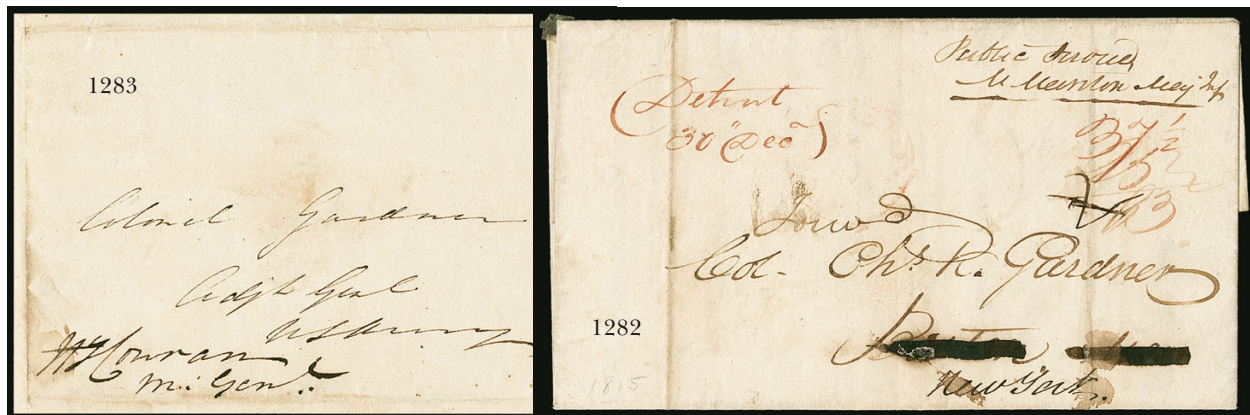 1283
Colonel Gardner
Adjt Genl
US Army
Mr. Genl.
Public Service
Maj Inf
Detroit
30 Dec
37 1/2
Forwd
Col. Chs. K. Gardner
New York.
1282
1815